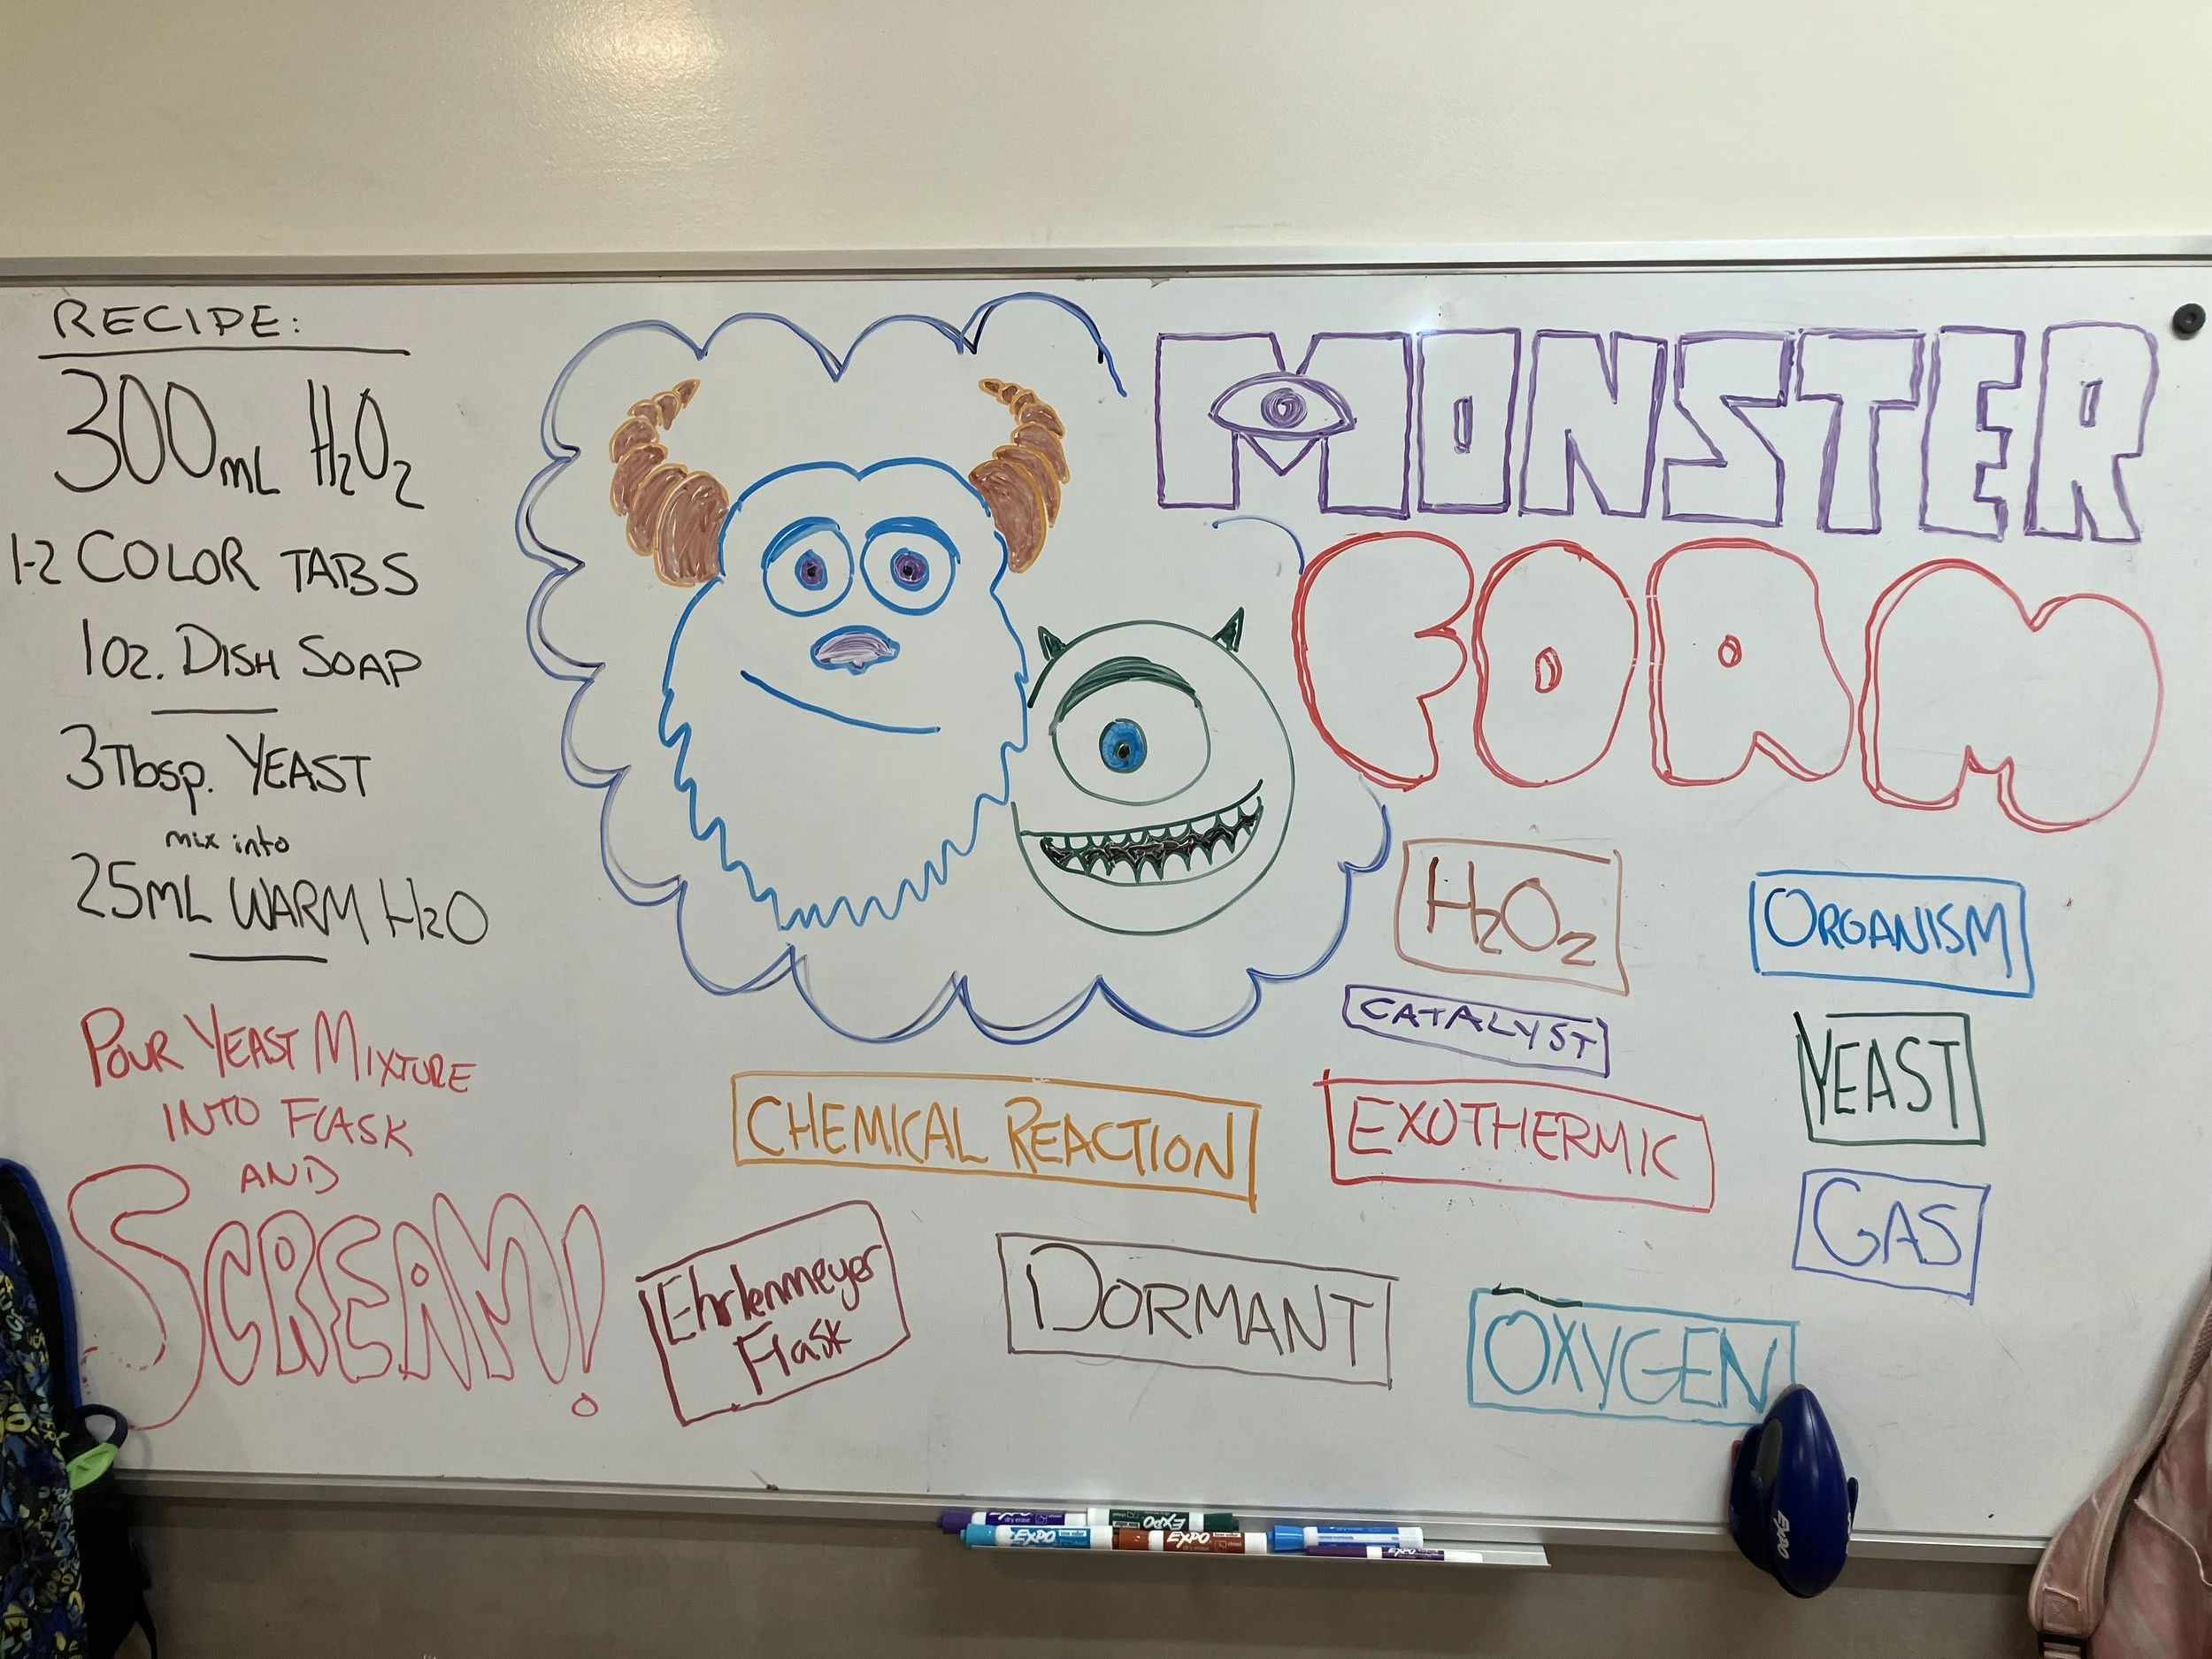 RECIPE:
300mL H2O2
1-2 COLOR TABS
1oz. DISH SOAP
3Tbsp. YEAST
mix into
25ML WARM H2O
POUR YEAST MIXTURE
INTO FLASK
AND
SCREAM!
MONSTER
FOAM
H2O2
ORGANISM
CATALYST
YEAST
CHEMICAL REACTION
EXOTHERMIC
GAS
Ehrlenmeyer
Flask
DORMANT
OXYGEN
EXPO
EXPO
EXPO
EXPO
EXPO